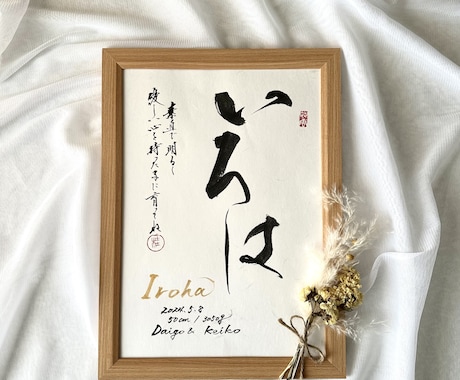 いろは
素直で明るく
優しい心を持った子に育ってね
Iroha
2024.5.8
50cm / 3050g
Daigo & Keiko